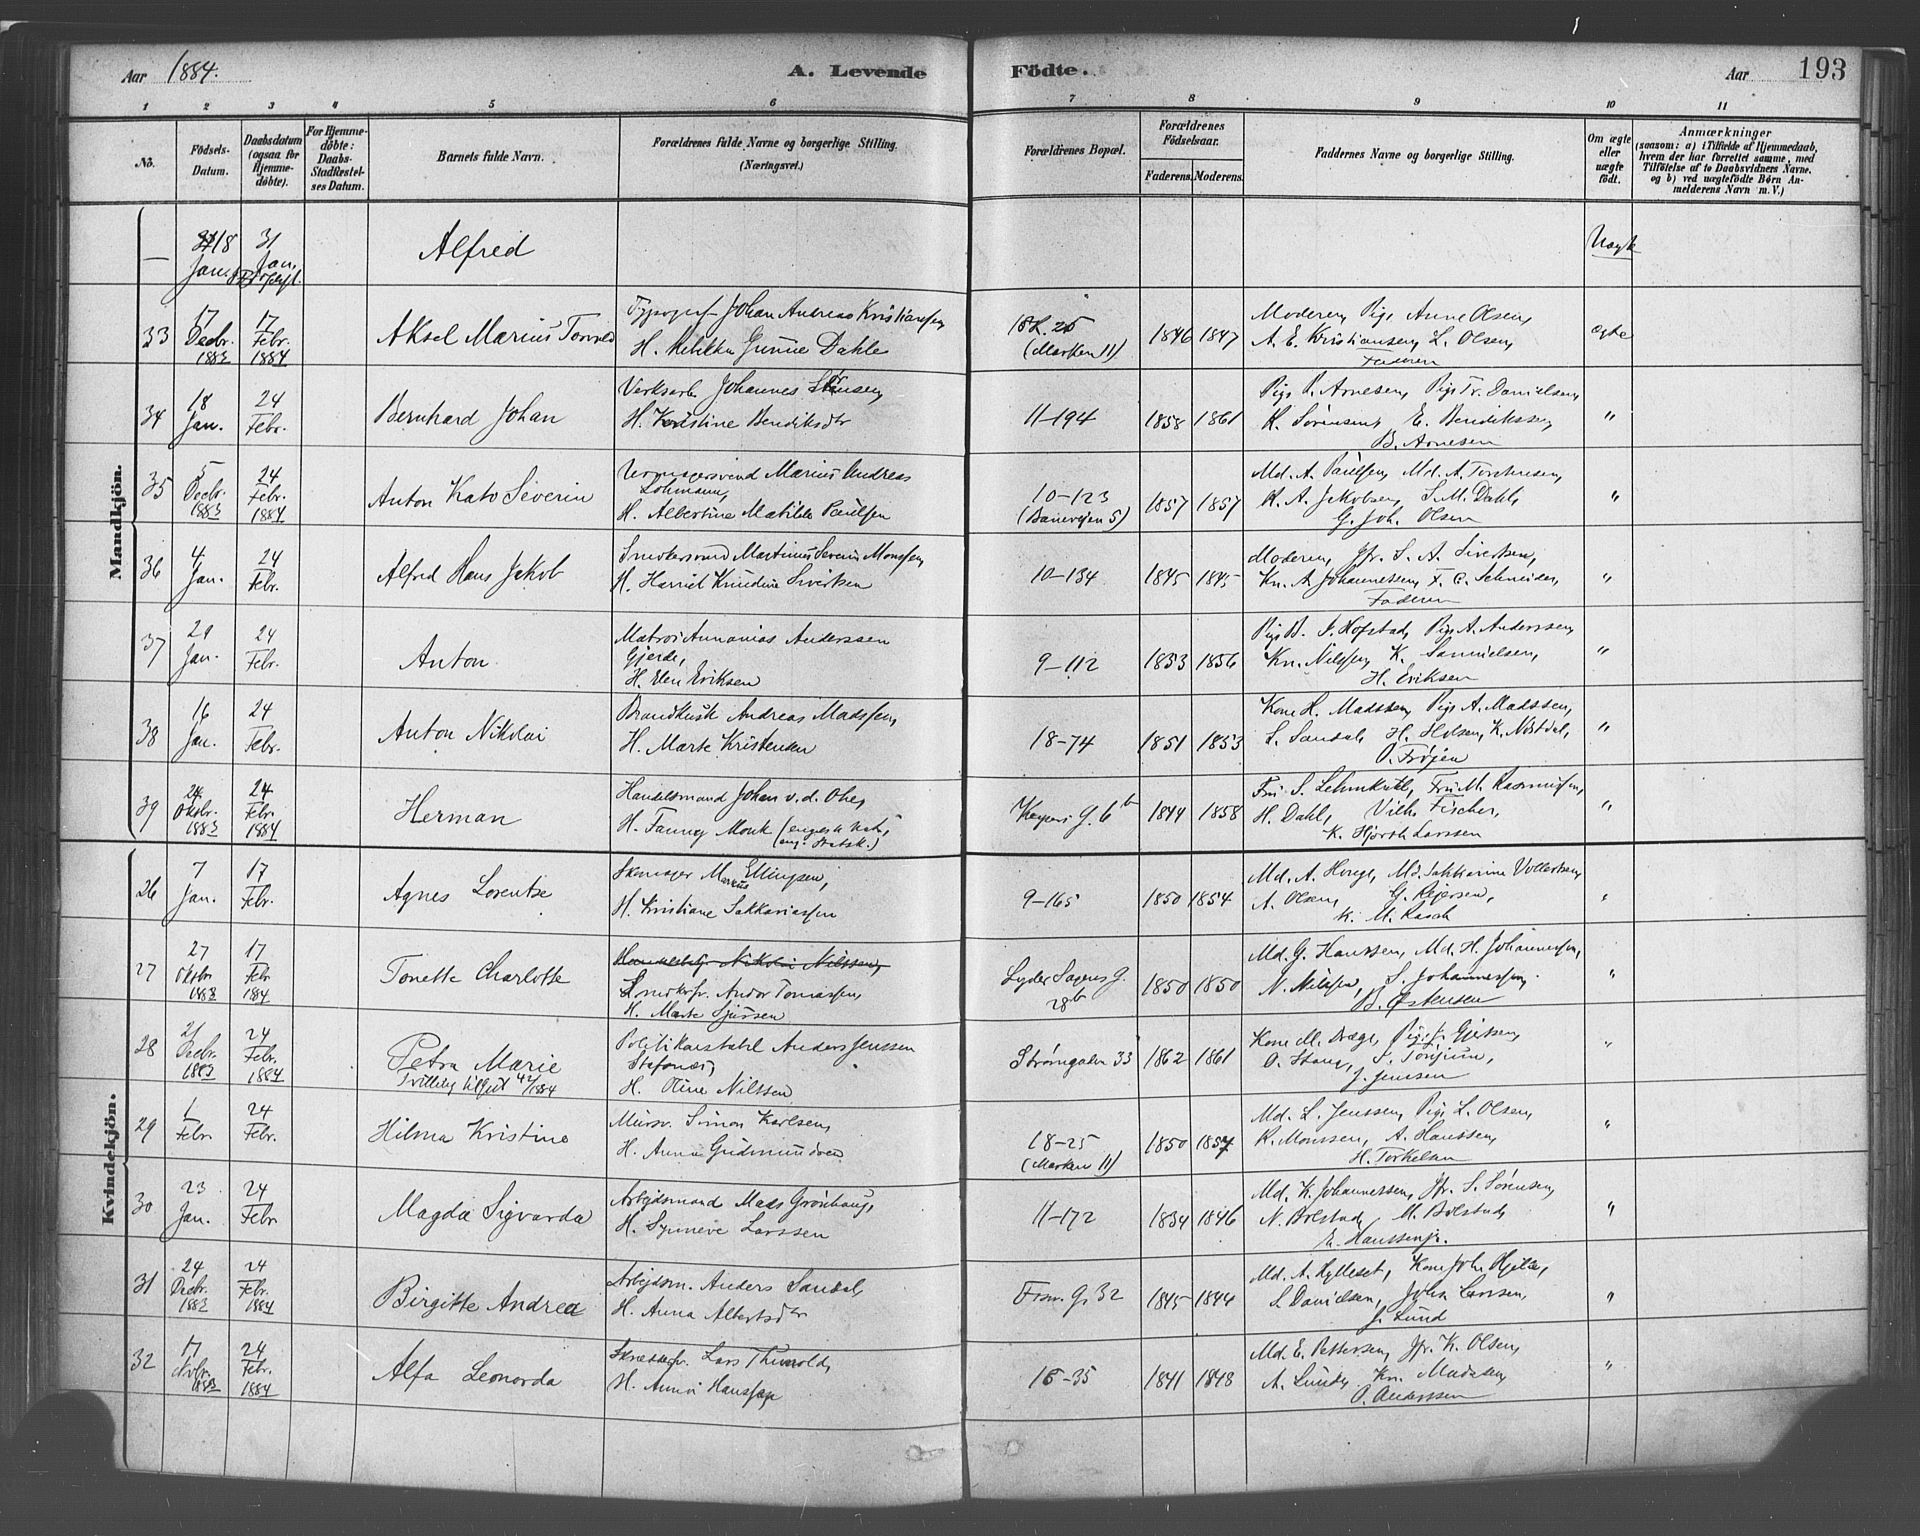 Aar 1884.
A. Levende
Fødte.
Aar
193
1 2 3 4 5 6 7 8 9 10 11
No.
Fødsels-
Datum.
Daabsdatum
(ogsaa for
Hjemme-
døbte).
For Hjemme-
døbte:
Daabs-
Stadfæstel-
ses Datum.
Barnets fulde Navn.
Forældrenes fulde Navne og borgerlige Stilling.
(Næringsvei.)
Forældrenes Bopæl.
Forældrenes
Fødselsaar.
Faderens. Moderens.
Faddernes Navne og borgerlige Stilling.
Om ægte
eller
uægte
født.
Anmærkninger
(saasom: a) i Tilfælde af Hjemmedaab,
hvem der har forrettet samme, med
Tilføielse af to Daabsvidners Navne,
og b) ved uægtefødte Børn An-
melderens Navn m. V.)
Mandkjön.
— 18 Jan. 31 Jan. Alfred
Uægte
33 17 Decbr. 1883 17 Febr. 1884 Aksel Marius
Typograf Johan Andreas Kristiansen
H. Gurine Dahle
18-25
(Marken 11)
1846 1847
Moderen, Pige Anne Olsen,
A. E. Kristiansen, L. Olsen,
Faderen
ægte
34 18 Jan. 24 Febr. Bernhard Johan
Verksarb. Johannes
H. Kristine Bendiksdtr
11-194
1858 1861
Pige R. Arnesen, Pige Tr. Danielsen,
K. Sørensen, E. Bendikssen,
B. Arnesen
"
35 5 Decbr. 1883 24 Febr. 1884 Anton Kato Severin
Marius Andreas
Lohmann,
H. Albertine Matilde Paulsen
10-123
(Banevejen 5)
1857 1857
Md. A. Paulsen, Md. A.
K. A. Jakobsen, S. M. Dahl,
G. Joh. Olsen
"
36 4 Jan. 24 Febr. Alfred Hans Jakob
Snekkersvend Martinus Severin Monssen,
H. Harriet Knudine Sivertsen
10-134
1845 1845
Moderen, Jfr. S. A. Sivertsen,
Kn. A. Johannessen, F. C. Schneider,
Faderen
"
37 29 Jan. 24 Febr. Anton
Matros Annanias Anderssen
Gjerde,
H. Elen Eriksen
9-112
1853 1856
Pige B. S. Hofstad, Pige A. Anderssen,
Kn. Nilssen, K. Samuelsen,
H. Eriksen
"
38 16 Jan. 24 Febr. Anton Nikolai
Brandkusk Andreas Madssen,
H. Marte Kristensen
18-74
1851 1853
Kone H. Madssen, Pige A. Madssen,
S. Sandal, H. Holsen, K. Nøstdal,
O. Frøjen
"
39 24 Oktbr. 1883 24 Febr. 1884 Herman
Handelsmand Johan v. d. Ohe,
H. Fanny Monk
1844 1858
Fru S. Lehmkuhl, Fru M. Rasmussen,
H. Dahl, Vilh. Fischer,
K. Hjorth Larssen
"
Kvindekjön.
26 7 Jan. 17 Febr. Agnes Lorentse
Skomager Markus Ellingsen,
H. Kristiane Sakkariassen
9-165
1850 1854
Md. A. Hauge, Md. Sakkarine Vollertsen,
A. Olsen, G. Rejersen,
K. M. Rasch
"
27 27 Oktbr. 1883 17 Febr. 1884 Tonette Charlotte
Nikolai Nilssen,
Snedkersv. Andor Tomassen,
H. Marte Sjursen
Lyder Sagens G.
28b
1850 1850
Md. G. Hanssen, Md. H. Johannessen,
N. Nilssen, S. Johannessen,
B. Østensen
"
28 21 Decbr. 1883 24 Febr. 1884 Petra Marie
Tvilling tilført 42/1884
Politikonstabel Anders Jenssen
H. Oline Nilssen
Strømgaden 33
1862 1861
Kone M. Drage, Pige
O. Stang, S. Tønjum,
J. Jensen
"
29 1 Febr. 24 Febr. Hilma Kristine
Mursv. Simon Karlsen,
H. Anna Gudmundsen
18-25
(Marken 11)
1850 1857
Md. L. Jenssen, Pige L. Olsen,
R. Monssen, A. Hanssen,
H. Torkelsen
"
30 23 Jan. 24 Febr. Magda Sigvarda
Arbejdsmand Mads Grønhaug,
H. Synneve Larssen
11-172
1834 1846
Md. K. Johannessen, Jfr. S. Sørensen,
N. Bolstad, M. Bolstad,
E. Hanssen jr.
"
31 24 Decbr. 1883 24 Febr. 1884 Birgitte Andrea
Arbejdsm. Anders Sandal,
H. Anna Albertsdtr
Fosw. G. 32
1845 1844
Md. A. Hylleset, Kone Joh.
S. Davidsen, John Larsen,
J. Lund
"
32 17 Novbr. 1883 24 Febr. 1884 Alfa Leonarda
Lars Thorvald,
H. Anna Hanssen
16-35
1841 1848
Md. E. Pettersen, Jfr. K. Olsen,
A. Lund, Kn. Madssen,
O. Anderssen
"